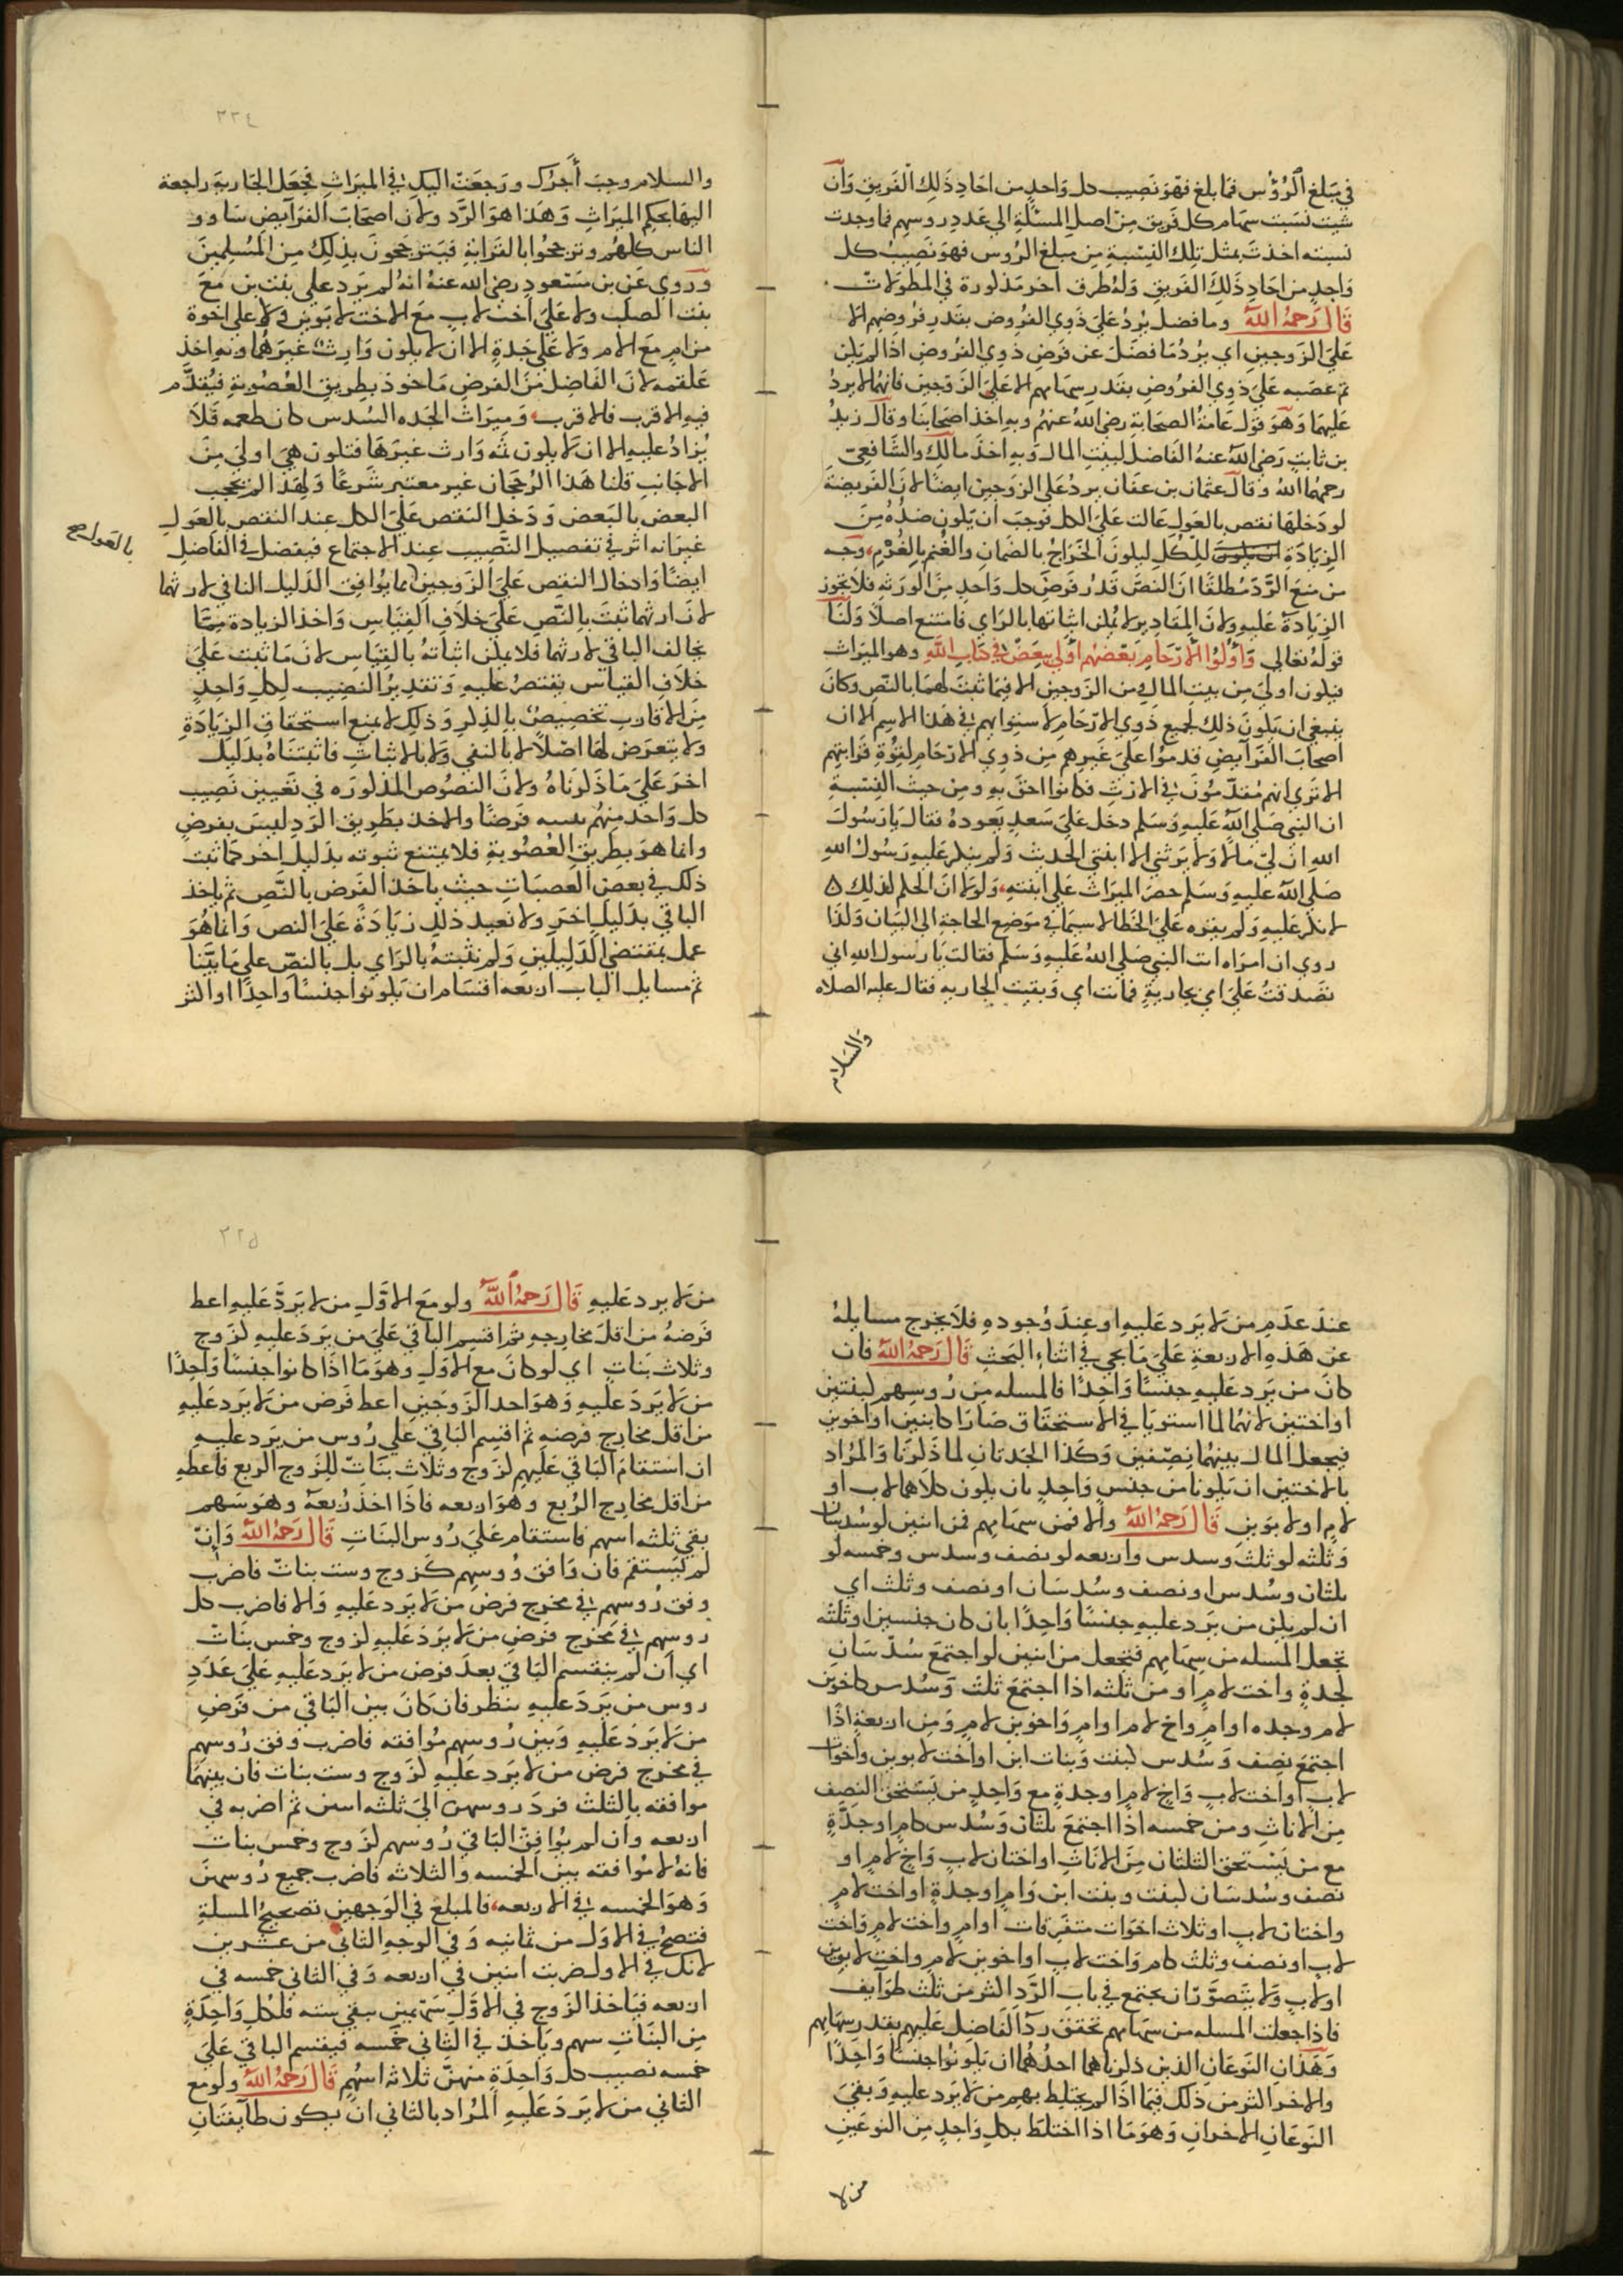 في مبلغ الرؤس فما بلغ فهو نصيب كل واحد من احاد ذلك الفريق وان
شيت نسبت سهام كل فريق من اصل المسئلة الي عدد روسهم فما وجدت
نسبته اخذت بمثل تلك النسبة من مبلغ الروس فهو نصيب كل
واحد من احاد ذلك الفريق وله طرق اخر مذكورة في المطولات
قال رحمه الله وما فضل يرد علي ذوي الفروض بقدر فروضهم الا
علي الزوجين اي يرد ما فضل عن فرض ذوي الفروض اذا لم يكن
ثم عصبه علي ذوي الفروض بقدر سهامهم الا علي الزوجين فانهما لا يرد
عليهما وهو قول عامة الصحابة رضي الله عنهم وبه اخذ اصحابنا وقال زيد
بن ثابت رضي الله عنه الفاضل لبيت المال وبه اخذ مالك والشافعي
رحمهما الله وقال عثمان بن عفان يرد علي الزوجين ايضا لان الفريضة
لو دخلها نقص بالعول عالت علي الكل فوجب ان يكون ضده من
الزيادة ان يكون للكل ليكون الخراج بالضمان والغنم بالغرم وجه
من منع الرد مطلقا ان النص قدر فرض كل واحد من الورثه فلا يجوز
الزيادة عليه ولان المقادير لا يمكن اثباتها بالراي فامتنع اصلا ولنا
قوله تعالي واولوا الارحام بعضهم اولي ببعض في كتاب الله وهو الميراث
فيكون اولي من بيت المال ومن الزوجين الا فيما ثبت لهما بالنص وكان
ينبغي ان يكون ذلك لجميع ذوي الارحام لاستوايهم في هذا الاسم الا ان
اصحاب الفرايض قدموا علي غيرهم من ذوي الارحام لقوة قرابتهم
الا تري انهم مقدمون في الارث فكانوا احق به ومن حيث النسبة
ان النبي صلي الله عليه وسلم دخل علي سعد يعوده فقال يا رسول
الله ان لي مالا ولا يرثني الا ابنتي الحديث ولم ينكر عليه رسول الله
صلي الله عليه وسلم حصر الميراث علي ابنته ولولا ان الحكم كذلك
لانكر عليه ولم يقره علي الخطا لا سيما في موضع الحاجة الي البيان وكذا
روي ان امراه اتت النبي صلي الله عليه وسلم فقالت يا رسول الله اني
تصدقت علي امي بجارية فماتت امي وبقيت الجاريه فقال عليه الصلاه
والسلام
٢٢٤
والسلام وجب أجرك ورجعت اليك في الميراث فجعل الجارية راجعة
اليها بحكم الميراث وهذا هو الرد ولان اصحاب الفرايض ساوو
الناس كلهم وترجحوا بالقرابة فيترجحون بذلك من المسلمين
وروي عن بن مسعود رضي الله عنه انه لم يرد علي بنت بن مع
بنت الصلب ولا علي اخت لاب مع الاخت لابوين ولا علي اخوة
من ام مع الام ولا علي جدة الا ان لا يكون وارث غيرهما وبه اخذ
علقمه لان الفاضل من الفرض ماخوذ بطريق العصوبة فيقدم
فيه الاقرب فالاقرب وميراث الجده السدس كان طعمه فلا
يزاد عليه الا ان لا يكون ثمه وارث غيرها فتكون هي اولي من
الاجانب قلنا هذا الرجحان غير معتبر شرعا ولهذا لم يحجب
البعض بالبعض ودخل النقص علي الكل عند النقص بالعول
غير انه اثر في تفصيل النصيب عند الاجتماع فيفضل في الفاضل
بالعول صح
ايضا وادخال النقص علي الزوجين مما يوافق الدليل النافي لارثهما
لان ارثهما ثبت بالنص علي خلاف القياس واخذ الزيادة مما
يخالف الباقي لارثهما فلا يمكن اثباته بالقياس لان ما ثبت علي
خلاف القياس يقتصر عليه وتقدير النصيب لكل واحد
من الاقارب تخصيص بالذكر وذلك لا يمنع استحقاق الزيادة
ولا يتعرض لها اصلا لا بالنفي ولا بالاثبات فاثبتناه بدليل
اخر علي ما ذكرناه ولان النصوص المذكوره في تعيين نصيب
كل واحد منهم فرضا والاخذ بطريق الرد ليس بفرض
وانما هو بطريق العصوبة فلا يمتنع ثبوته بدليل اخر كما ثبت
ذلك في بعض العصبات حيث ياخذ الفرض بالنص ثم ياخذ
الباقي بدليل اخر ولا نعيد ذلك زيادة علي النص وانما هو
عمل بمقتضي الدليلين ولم نثبته بالراي بل بالنص علي ما بينا
ثم مسايل الباب اربعه اقسام ان يكونوا جنسا واحدا او اكثر
عند عدم من لا يرد عليه او عند وجوده فلا يخرج مسايله
عن هذه الاربعة علي ما يجي في اثناء البحث قال رحمه الله فان
كان من يرد عليه جنسا واحدا فالمسله من روسهم لبنتين
او اختين لانهما لما استويا في الاستحقاق صارا كابنين او اخوين
فيجعل المال بينهما نصفين وكذا الجدتان لما ذكرنا والمراد
بالاختين ان يكونا من جنس واحد بان يكون كلاهما لاب او
لام او لابوين قال رحمه الله والا فمن سهامهم فمن اثنين لو سدسان
وثلثه لو ثلث وسدس واربعه لو نصف وسدس وخمسه لو
ثلثان وسدس او نصف وسدسان او نصف وثلث اي
ان لم يكن من يرد عليه جنسا واحدا بان كان جنسين او ثلثه
تجعل المسله من سهامهم فتجعل من اثنين لو اجتمع سدسان
لجدة واخت لام او من ثلثه اذا اجتمع ثلث وسدس كاخوين
لام وجده او ام واخ لام او ام واخوين لام ومن اربعة اذا
اجتمع نصف وسدس لبنت وبنات ابن او اخت لابوين واخوات
لاب او اخت لاب واخ لام او جدة مع واحد من يستحق النصف
من الاناث ومن خمسه اذا اجتمع ثلثان وسدس كام او جدة
مع من يستحق الثلثان من الاناث او اختان لاب واخ لام او
نصف وسدسان لبنت وبنت ابن وام او جدة او اخت لام
واختان لاب او ثلاث اخوات متفرقات او ام واخت لام واخت
لاب او نصف وثلث كام واخت لاب او اخوين لام واخت لابوين
او لاب ولا يتصور ان يجتمع في باب الرد اكثر من ثلث طوايف
فاذا جعلت المسله من سهامهم تحقق رد الفاضل عليهم بقدر سهامهم
وهذان النوعان الذين ذكرناهما احدهما ان يكونوا جنسا واحدا
والاخر اكثر من ذلك فيما اذا لم يختلط بهم من لا يرد عليه وبقي
النوعان الاخران وهو ما اذا اختلط بكل واحد من النوعين
من لا
٢٢٥
من لا يرد عليه قال رحمه الله ولو مع الاول من لا يرد عليه اعط
فرضه من اقل مخارجه ثم اقسم الباقي علي من يرد عليه لزوج
وثلاث بنات اي لو كان مع الاول وهو ما اذا كانوا جنسا واحدا
من لا يرد عليه وهو احد الزوجين اعط فرض من لا يرد عليه
من اقل مخارج فرضه ثم اقسم الباقي علي روس من يرد عليه
ان استقام الباقي عليهم لزوج وثلاث بنات للزوج الربع فاعطه
من اقل مخارج الربع وهو اربعه فاذا اخذ ربعه وهو سهم
بقي ثلثه اسهم فاستقام علي روس البنات قال رحمه الله وان
لم يستقم فان وافق رووسهم كزوج وست بنات فاضرب
وفق روسهم في مخرج فرض من لا يرد عليه والا فاضرب كل
روسهم في مخرج فرض من لا يرد عليه لزوج وخمس بنات
اي ان لم ينقسم الباقي بعد فرض من لا يرد عليه علي عدد
روس من يرد عليه ينظر فان كان بين الباقي من فرض
من لا يرد عليه وبين روسهم موافقه فاضرب وفق روسهم
في مخرج فرض من لا يرد عليه لزوج وست بنات فان بينهما
موافقه بالثلث فرد روسهن الي ثلثه اثنين ثم اضربه في
اربعه وان لم يوافق الباقي روسهم لزوج وخمس بنات
فانه لا موافقه بين الخمسه والثلاثه فاضرب جميع روسهن
وهو الخمسه في الاربعه فالمبلغ في الوجهين تصحيح المسلة
فتصح في الاول من ثمانيه وفي الوجه الثاني من عشرين
لانك في الاول ضربت اثنين في اربعه وفي الثاني خمسه في
اربعه فياخذ الزوج في الاول سهمين يبقي سته فلكل واحدة
من البنات سهم وياخذ في الثاني خمسه فيقسم الباقي علي
خمسه نصيب كل واحدة منهن ثلاثه اسهم قال رحمه الله ولو مع
الثاني من لا يرد عليه المراد بالثاني ان يكون طايفتان